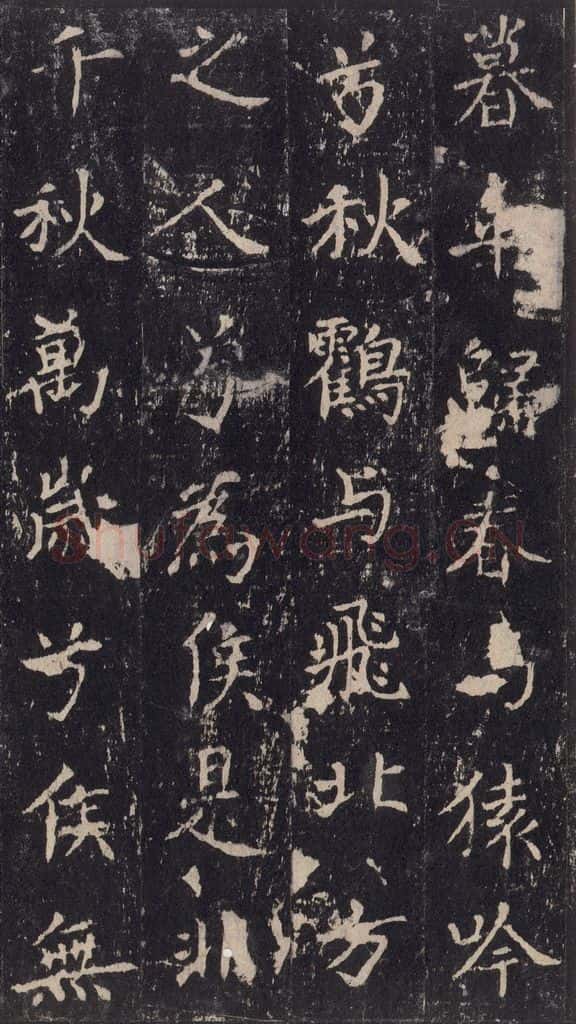 暮来歸春与猿吟
兮秋鶴与飛北方
之人兮為侯是非
千秋萬歲兮侯無
Shufawang.CN